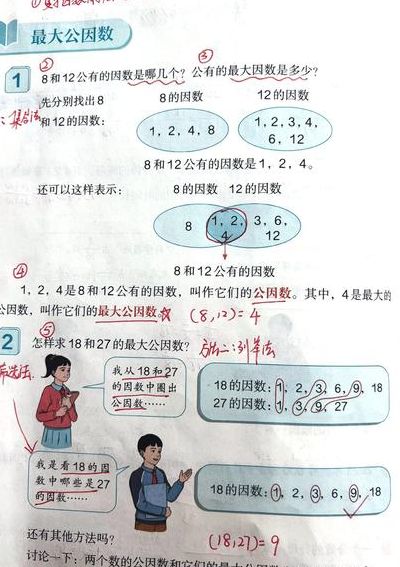 最大公因数
② ③
1 8和12公有的因数是哪几个？公有的最大因数是多少？
先分别找出8 8的因数 12的因数
：集合法 和12的因数：
1，2，4，8 1，2，3，4，
6，12
8和12公有的因数是1，2，4。
还可以这样表示： 8的因数 12的因数
8 1，2， 3，6，
4 12
8和12公有的因数
④
1，2，4是8和12公有的因数，叫作它们的公因数。其中，4是最大的
公因数，叫作它们的最大公因数。 (8,12)=4
⑤
2 怎样求18和27的最大公因数？ 方法二：列举法
筛选法
我从18和27
的因数中圈出
公因数……
18的因数：1，2，3，6，9，18
27的因数：1，3，9，27
我是看18的因
数中哪些是27
的因数……
18的因数：1，2，3，6，9，18
还有其他方法吗？ (18,27)=9
讨论一下：两个数的公因数和它们的最大公因数